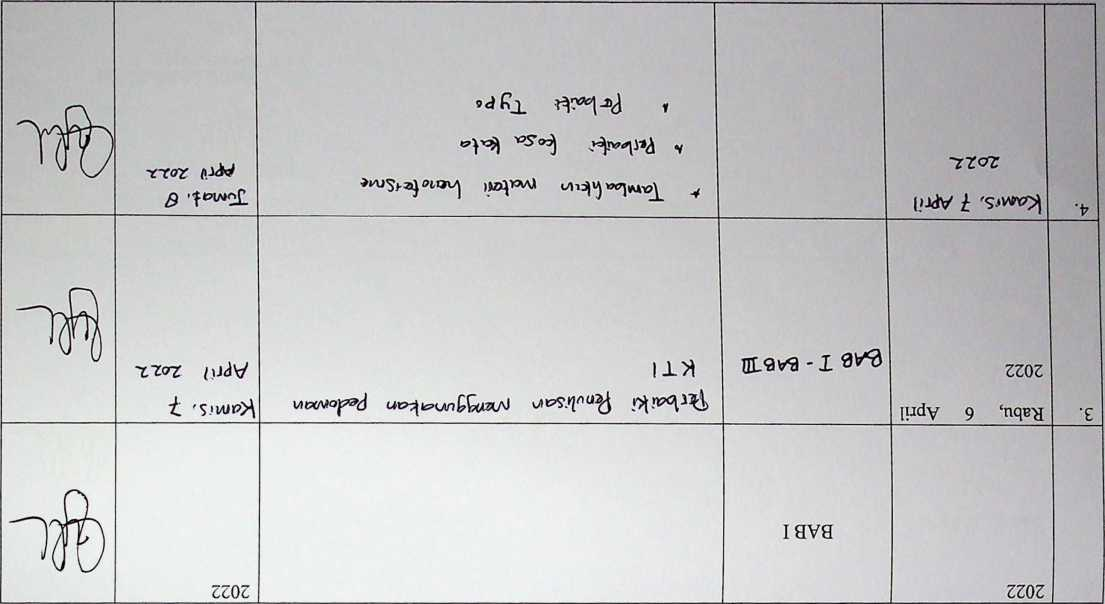 2022
BAB I
2022
3.
Rabu, 6 April
2022
BAB I - BAB III
Perbaiki Penulisan menggunakan pedoman
KTI
Kamis, 7
April 2022
4.
Kamis, 7 April
2022
* Tambahkan materi
* Perbaiki kosa kata
* Perbaiki Typo
Jumat, 8
April 2022